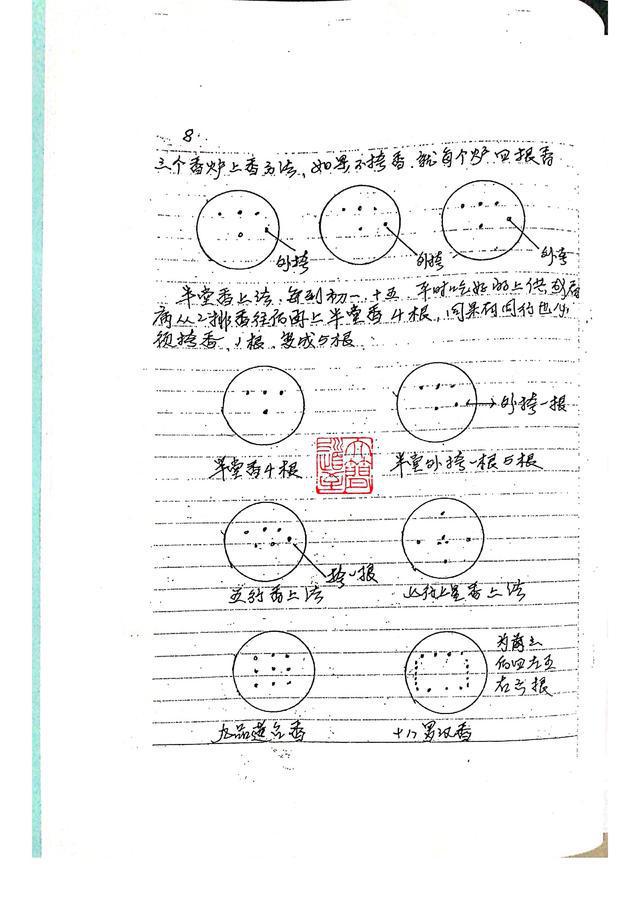 8.
三个香炉上香方法，如果不挎香.就每个炉四根香
外挎
外挎
外挎
半堂香上法，每到初一.十五.平时吃好的上供或看
病从2排香往前面上半堂香4根，同来有同行也必
须挎香，1根，变成5根
外挎一根
半堂香4根
半堂外挎一根5根
挎1根
五行香上法
香上法
为前三
后四左五
右六根
九品莲台香
十八罗汉香